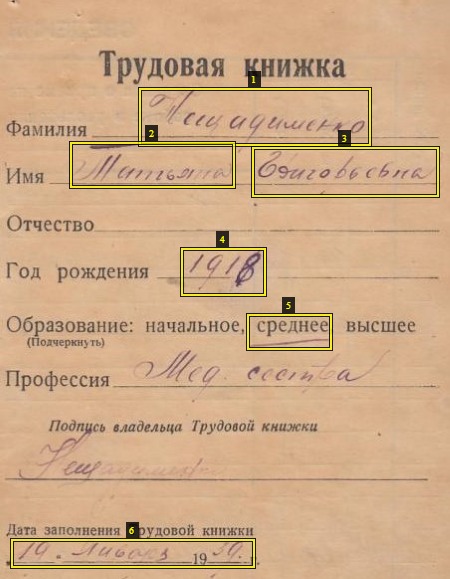 Трудовая книжка
Фамилия Нещадименко
Имя Татьяна
Отчество
Год рождения 1918
Образование: начальное, среднее высшее
(Подчеркнуть)
Профессия Мед. сестра
Подпись владельца Трудовой книжки
Нещадименко
Дата заполнения Трудовой книжки
19 Января 1939 г.